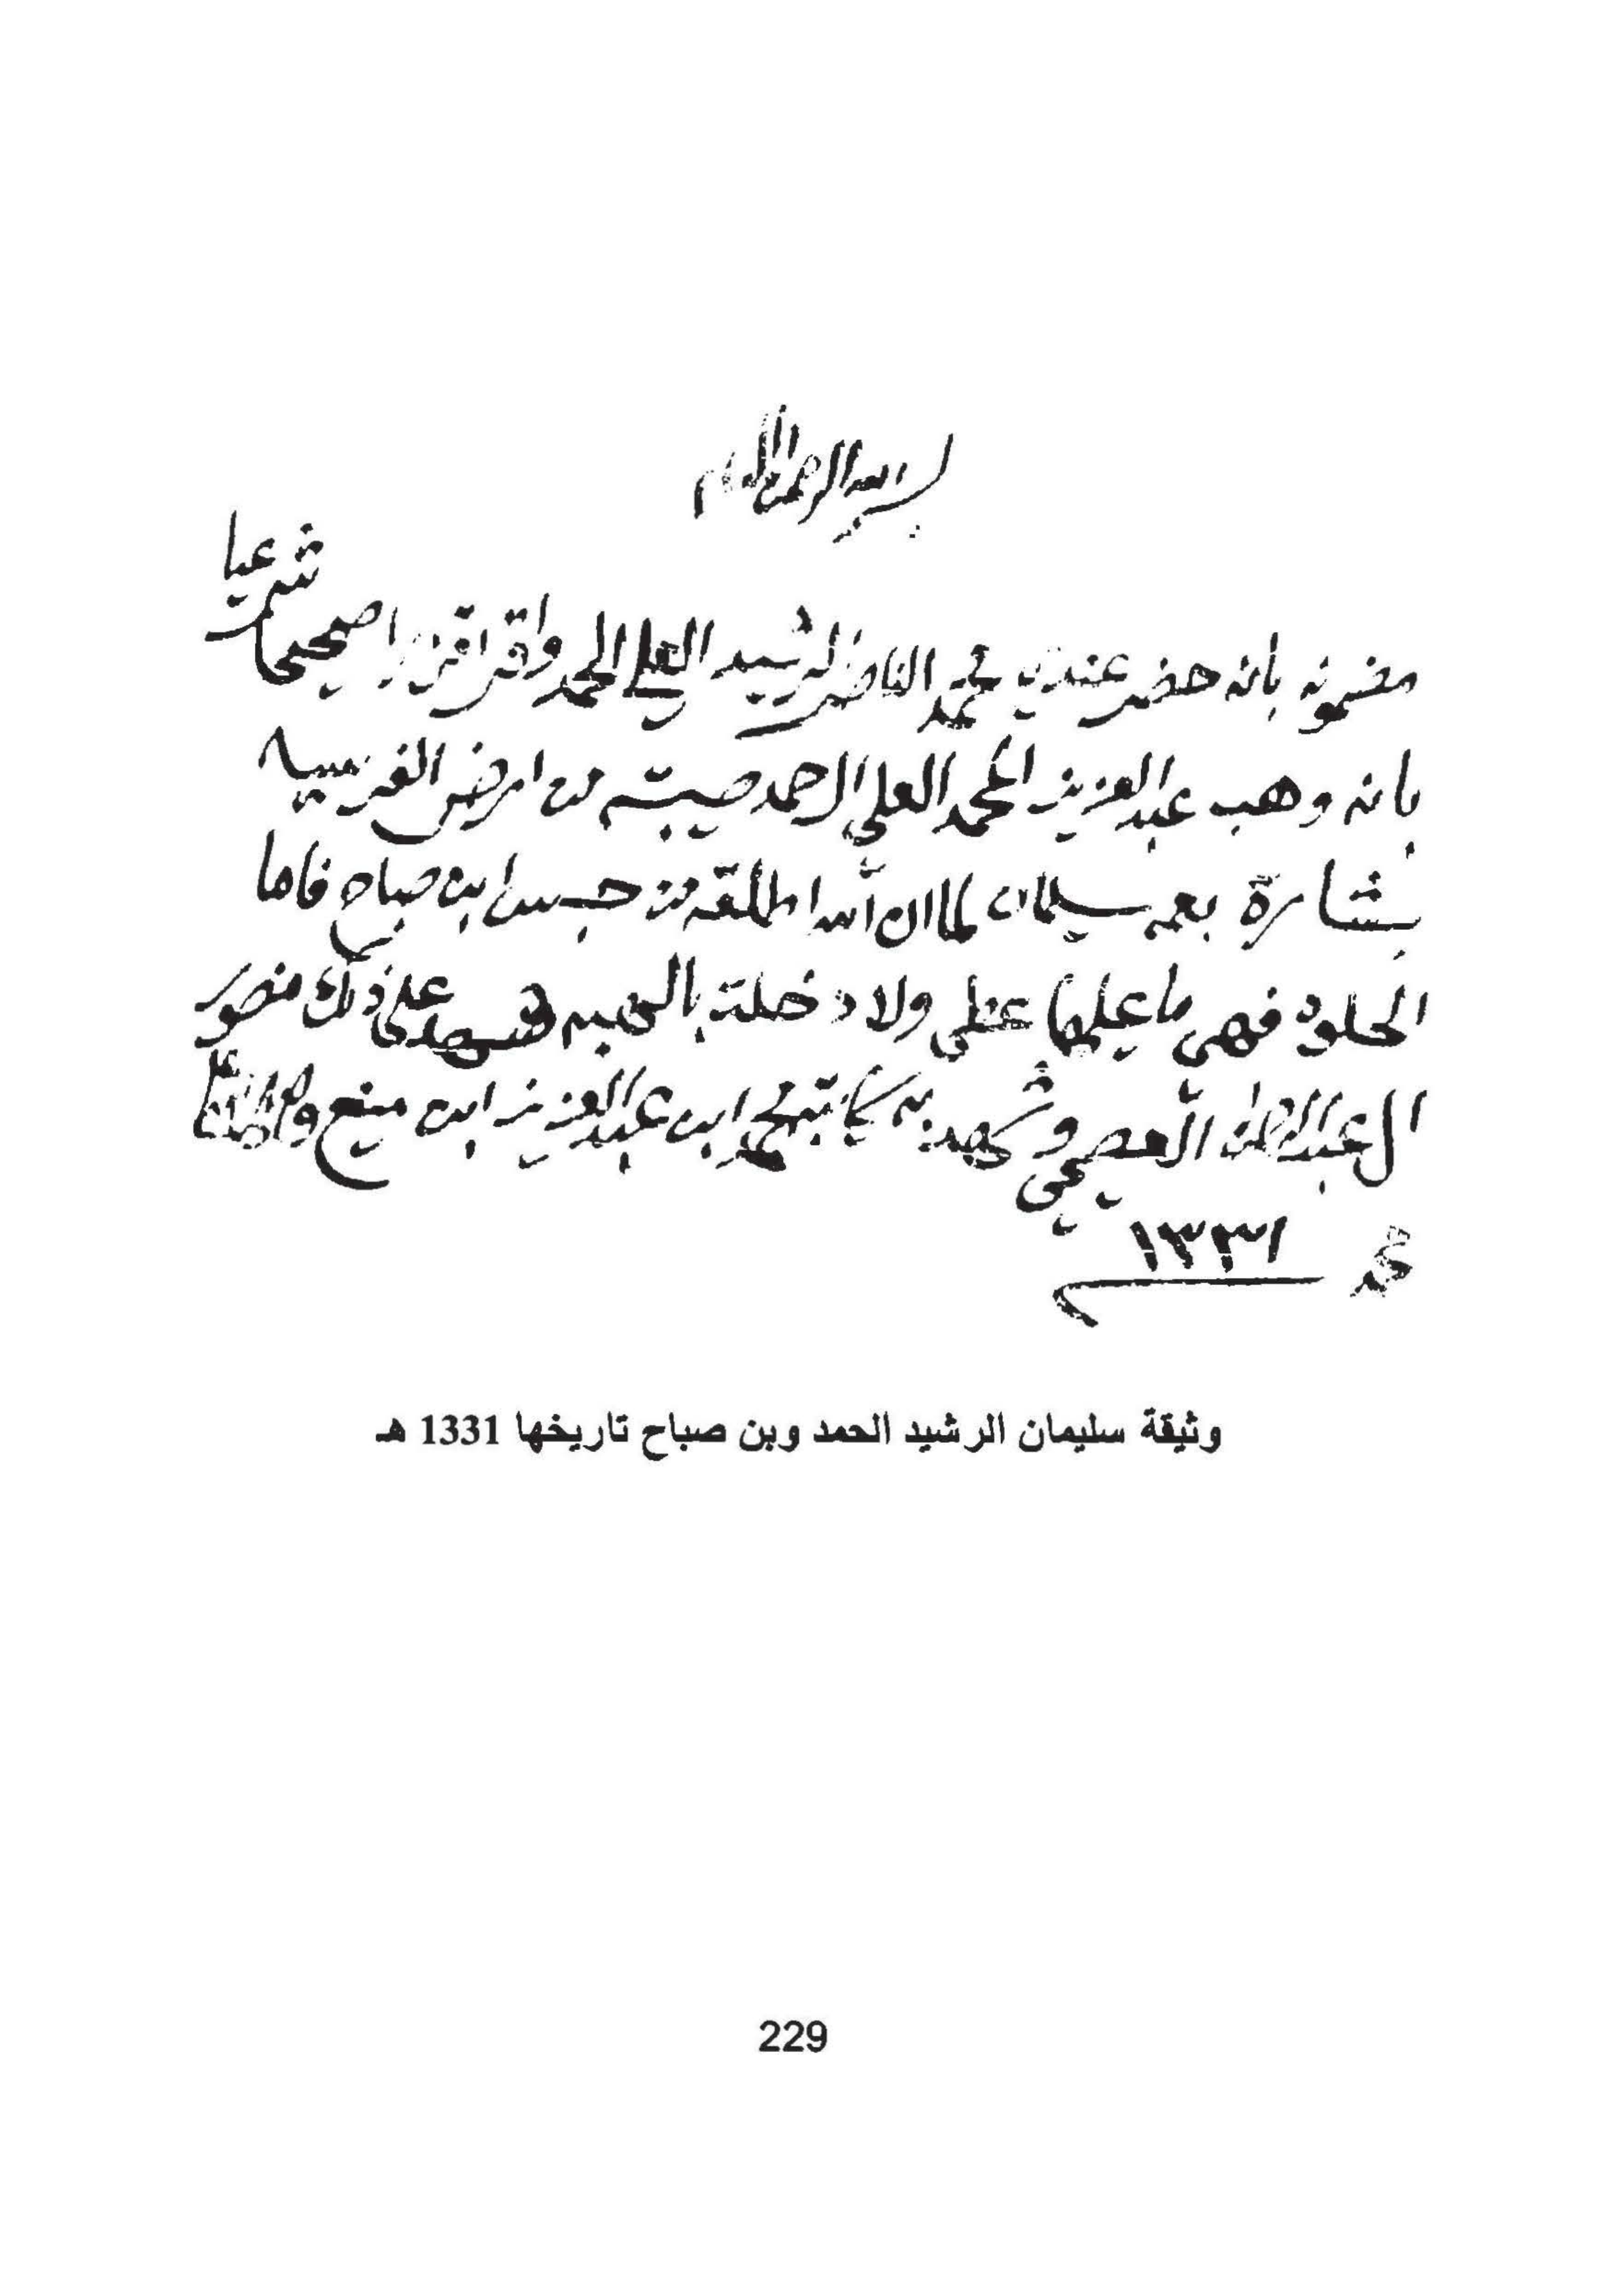 بسم الله الرحمن الرحيم
شرعيا
مضمونه بانه حضر عندي محمد الناصر الرشيد العلي الحمد واقر اقرارا صحيحا
بانه وهب عبدالعزيز المحمد العلي الحمد صيبته من ارض الغربيه
بشارة بعمه سليمان لما ان الله اطلقه من حبس ابن صباح فاما
الحلوه فهي ما عليها ولا دخلة بالهبه شهد على ذلك منصور
ال عبدالرحمن وشهد به كاتبه محمد ابن عبدالعزيز ابن منيع
١٣٣١
وثيقة سليمان الرشيد الحمد وبن صباح تاريخها 1331 هـ
229